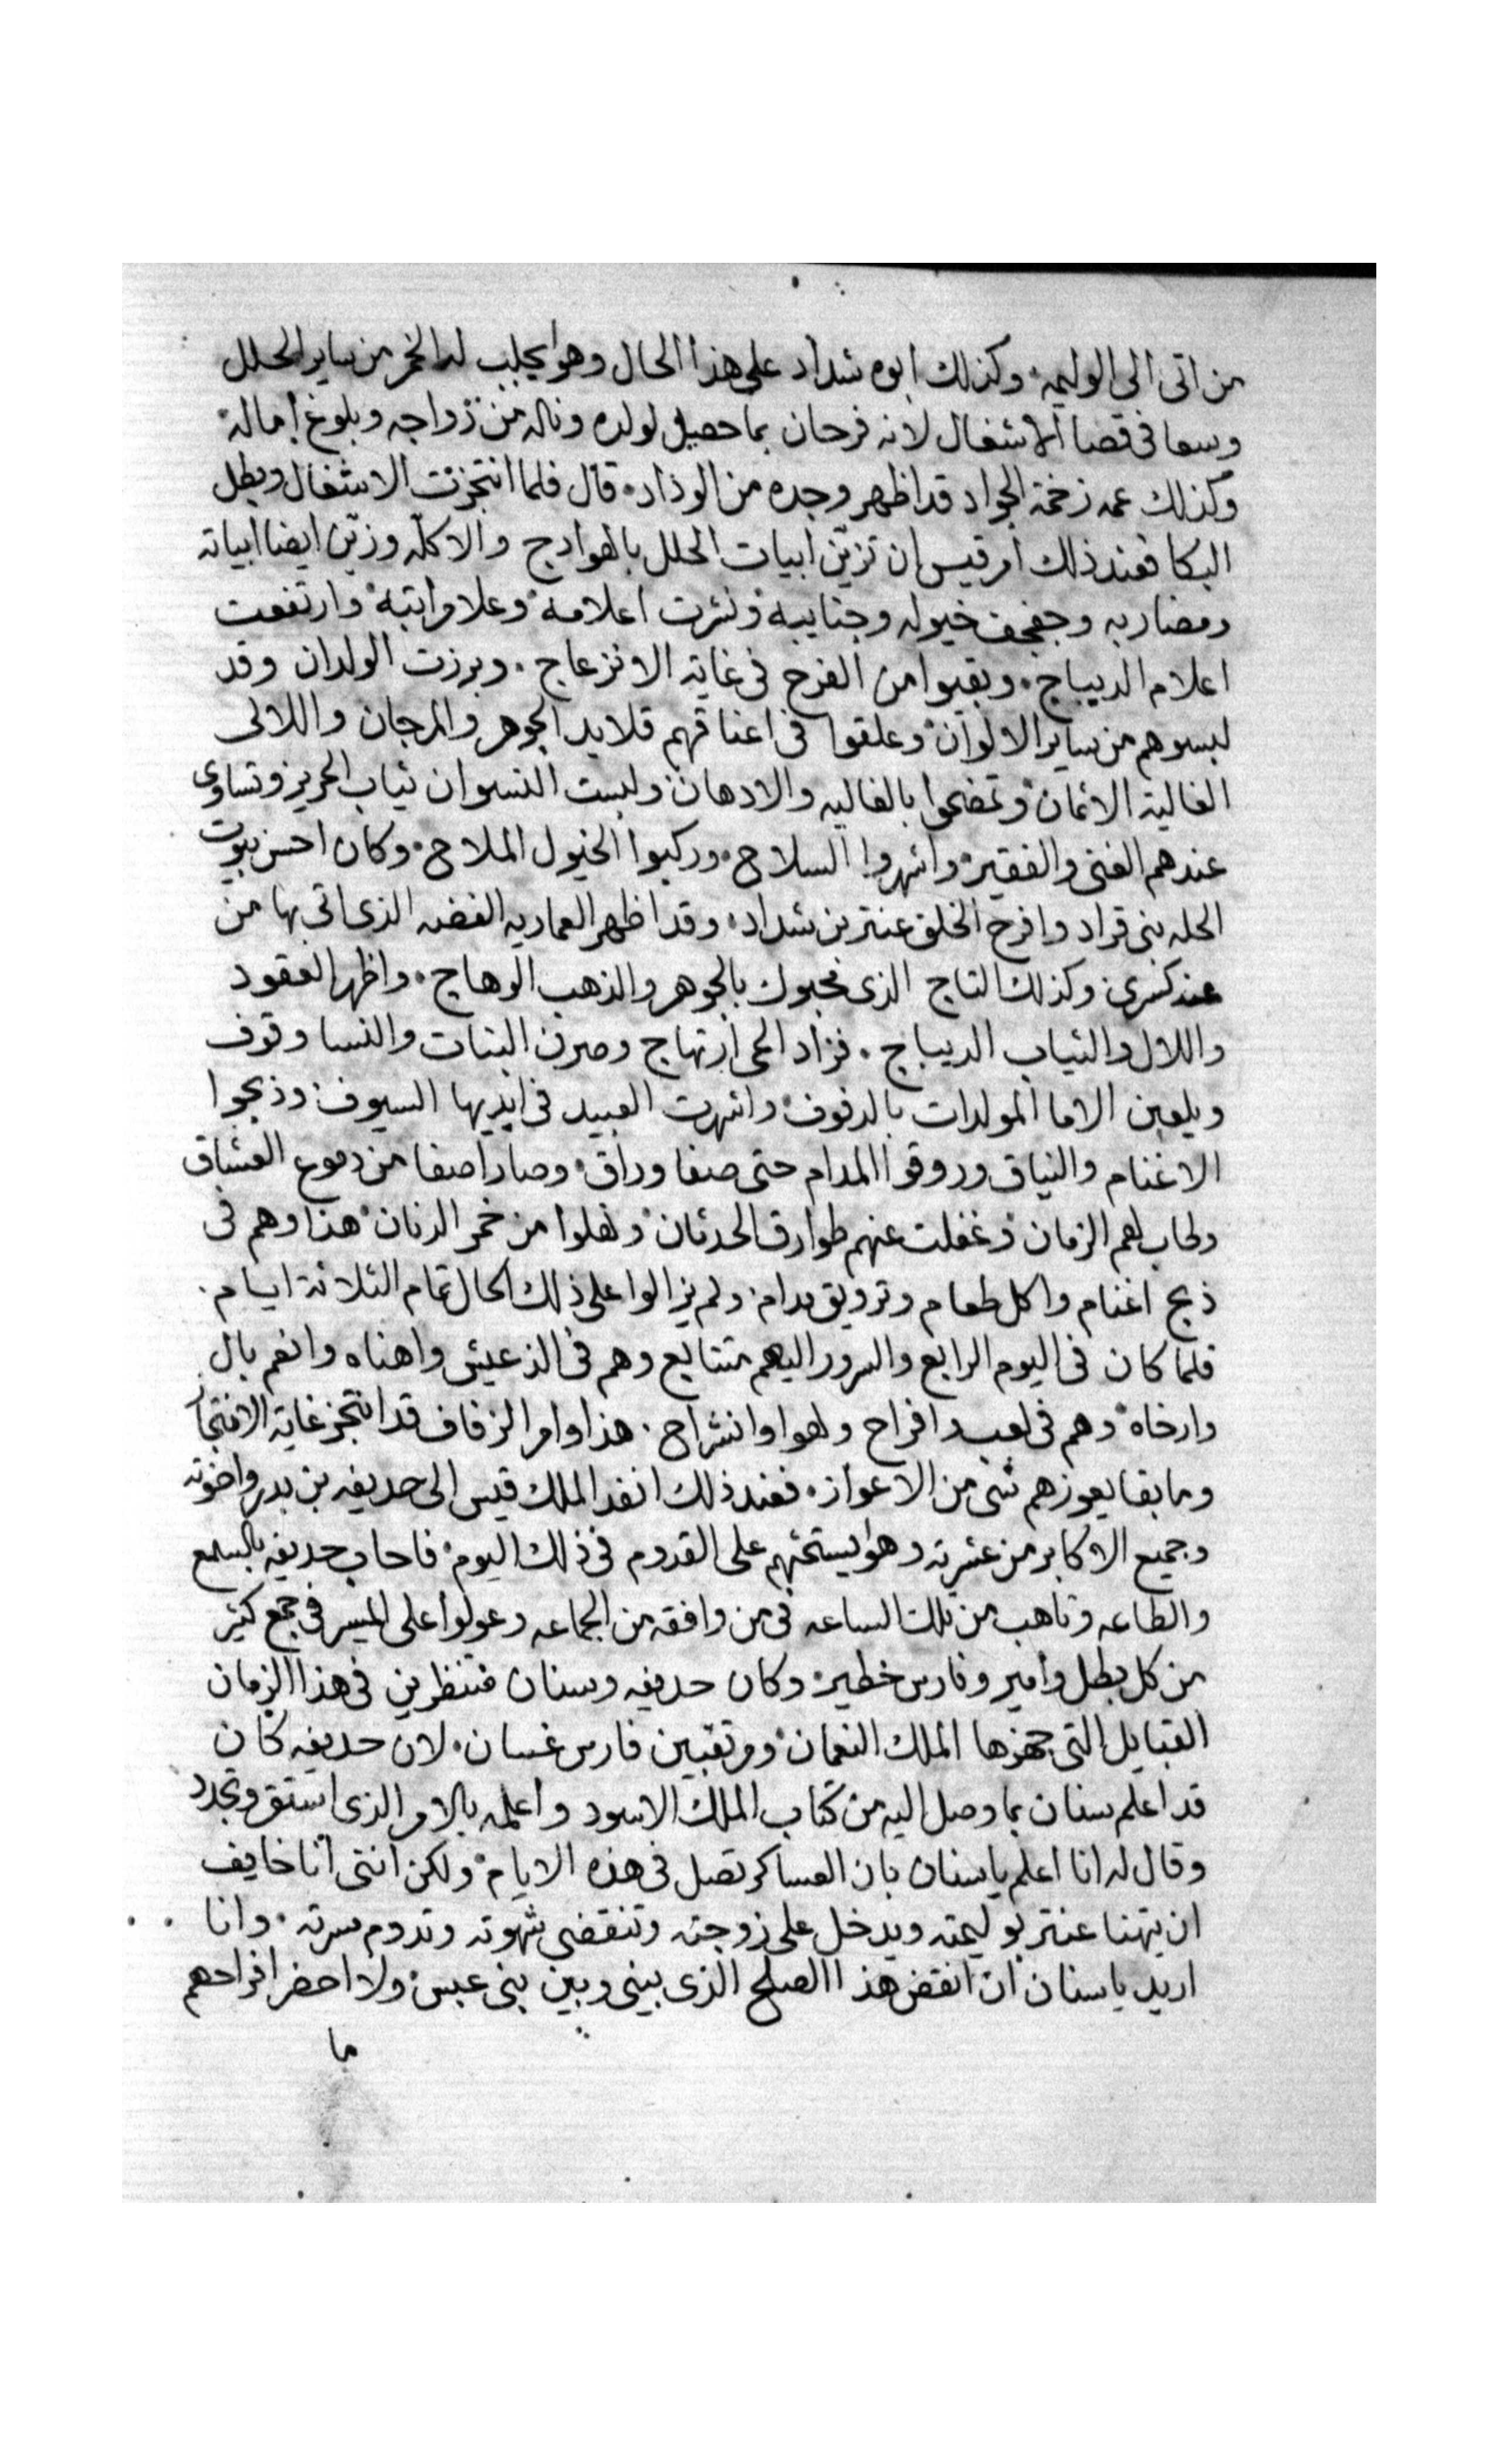 من اتى الى الوليمه وكذلك ابوه شداد على هذا الحال وهو يجلب له الخمر من ساير الحلل
وسعا فى قضا الاشغال لانه فرحان بما حصل لولده وناله من زواجه وبلوغ اماله
وكذلك عمه زخمة الجواد قد اظهر وجده من الوداد قال فلما انتجزت الاشغال وبطل
البكا فعند ذلك امر قيس ان تزين ابيات الحلل بالهوادج والاكله وزين ايضا ابياته
ومضاربه وجفجف خيوله وجناييه ونشرت اعلامه وعلا مراتبه وارتفعت
اعلام الديباج وبقيوا من الفرح فى غاية الانزعاج وبرزت الولدان وقد
لبسوهم من ساير الالوان وعلقوا فى اعناقهم قلايد الجوهر والمرجان واللالى
الغالية الاثمان وتضمخوا بالغاليه والادهان ولبست النسوان ثياب الحرير وتساوى
عندهم الغنى والفقير واشهروا السلاح وركبوا الخيول الملاح وكان احسن بيوت
الحله بنى قراد وافرح الخلق عنتر بن شداد وقد اظهر العماريه الفضه الذى اتى بها من
عند كسرى وكذلك التاج الذى محبوك بالجوهر والذهب الوهاج واظهر العقود
واللال والثياب الديباج فزاد الحى ارتهاج وصرن البنات والنسا وقوف
ويلعبن الاما المولدات بالدفوف واشهرت العبيد فى ايديها السيوف وذبحوا
الاغنام والنياق وروقوا المدام حتى صفا وراق وصار اصفا من دموع العشاق
وطاب لهم الزمان وغفلت عنهم طوارق الحدثان ونهلوا من خمر الدنان هذا وهم فى
ذبح اغنام واكل طعام وترويق مدام ولم يزالوا على ذلك الحال تمام الثلاثة ايام
فلما كان فى اليوم الرابع والسرور اليهم متتابع وهم فى الذ عيش واهناه وانعم بال
وارخاه وهم فى لعب وافراح ولهوا وانشراح هذا وامر الزفاف قد انتجز غاية الانتجا
وما بقا يعوزهم شى من الاعواز فعند ذلك انفد الملك قيس الى حديفه بن بدر واخوته
وجميع الاكابر من عشرته وهو يستحثهم على القدوم فى ذلك اليوم فاجاب حديفه بالسمع
والطاعه وتاهب من تلك الساعه فى من وافقه من الجماعه وعولوا على المسير فى جمع كثير
من كل بطل وامير وفارس خطير وكان حديفه وسنان منتظرين فى هذا الزمان
القبايل التى جهزها الملك النعمان ومرتقبين فارس غسان لان حديفه كان
قد اعلم سنان بما وصل اليه من كتاب الملك الاسود واعلمه بالامر الذى استق وتجدد
وقال له انا اعلم ياسنان بان العساكر تصل فى هذه الايام ولكن انتى انا خايف
ان يتهنا عنتر بوليمته ويدخل على زوجته وتنقضى شهوته وتدوم مسرته وانا
اريد ياسنان ان انقض هذا الصلح الذى بينى وبين بنى عبس ولا احضر افراحهم
ما